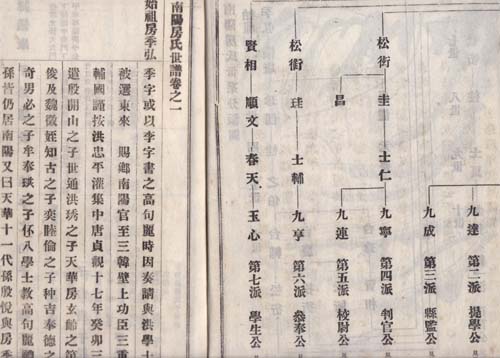 九達 第二派 提學公
九成 第三派 縣監公
松街 圭 士仁
九寧 第四派 判官公
昌 九連 第五派 校尉公
松街 珪 士輔 九亨 第六派 參奉公
賢相 順文 春天 玉心 第七派 學生公
南陽房氏世譜卷之一
始祖房季弘
季字或以李字書之高句麗時因奏請與洪學士
被選東來 賜鄉南陽官至三韓壁上功臣三重
輔國謹按洪忠平灌集中唐貞觀十七年癸卯三
遣殷開山之子世通洪琇之子天華房玄齡之第
俊及魏徵姪知古之子奕睦倫之子种吉奉德之
奇男必之子牟奉琰之子八學士教高句麗鴻
孫皆仍居南陽又曰天華十一代孫殷悅與房季